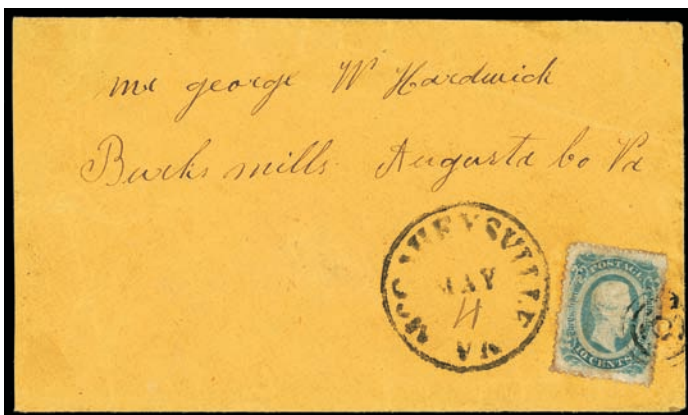 mr george W Hardwick
Burks mills Augusta co Va
MCGAHEYSVILLE VA
MAY
4
POSTAGE
TEN CENTS